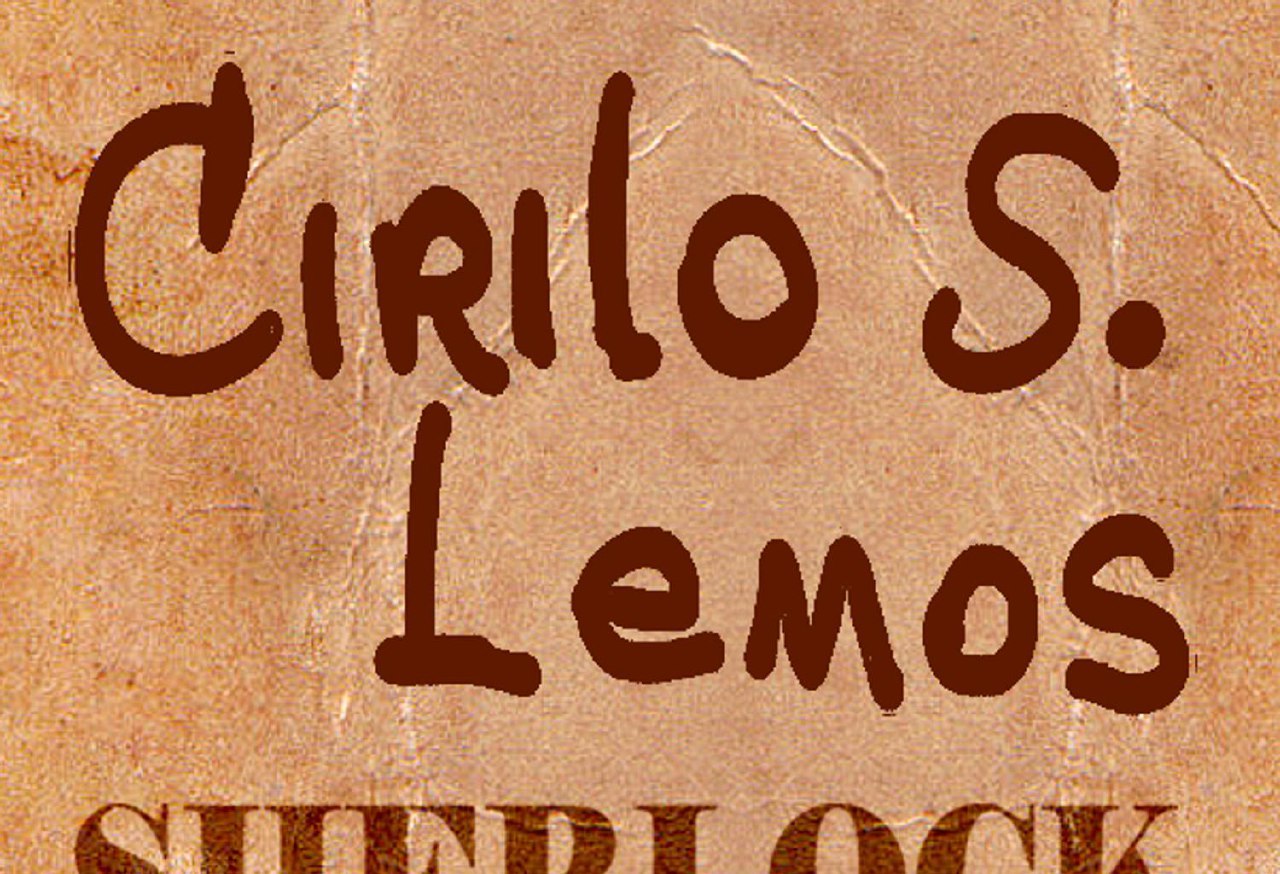 Cirilo S.
Lemos
SHERLOCK